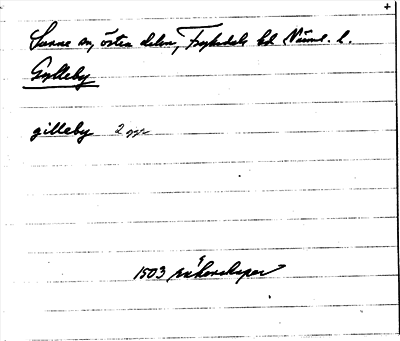 +
Sunne sn, östra delen, Fryksdals hd Värml. l.
Gylleby
gilleby 2 ggr
1503 räkenskaper